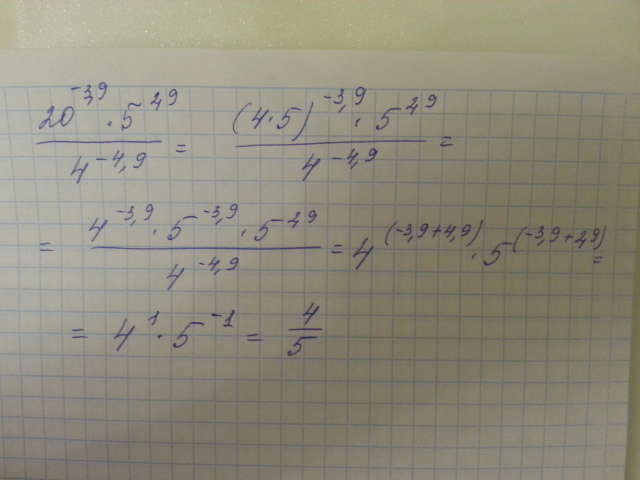 20^{-3,9} · 5^{2,9} / 4^{-4,9} = (4·5)^{-3,9} · 5^{2,9} / 4^{-4,9} =
= 4^{-3,9} · 5^{-3,9} · 5^{2,9} / 4^{-4,9} = 4^{(-3,9+4,9)} · 5^{(-3,9+2,9)} =
= 4^1 · 5^{-1} = 4/5